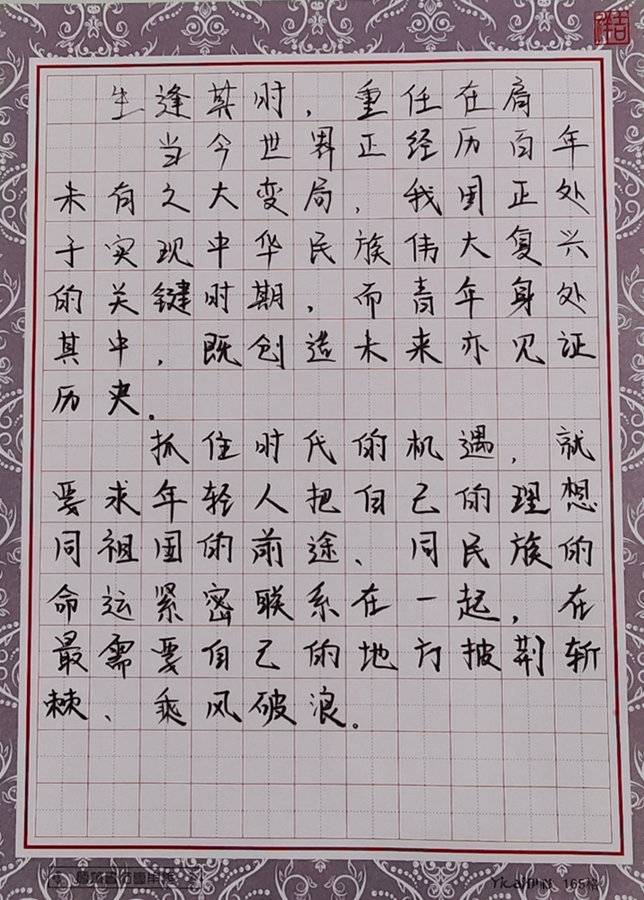 生逢其时，重任在肩
当今世界正经历百年
未有之大变局，我国正处
于实现中华民族伟大复兴
的关键时期，而青年身处
其中，既创造未来亦见证
历史。
抓住时代的机遇，就
要求年轻人把自己的理想
同祖国的前途、同民族的
命运紧密联系在一起，在
最需要自己的地方披荆斩
棘、乘风破浪。
165格